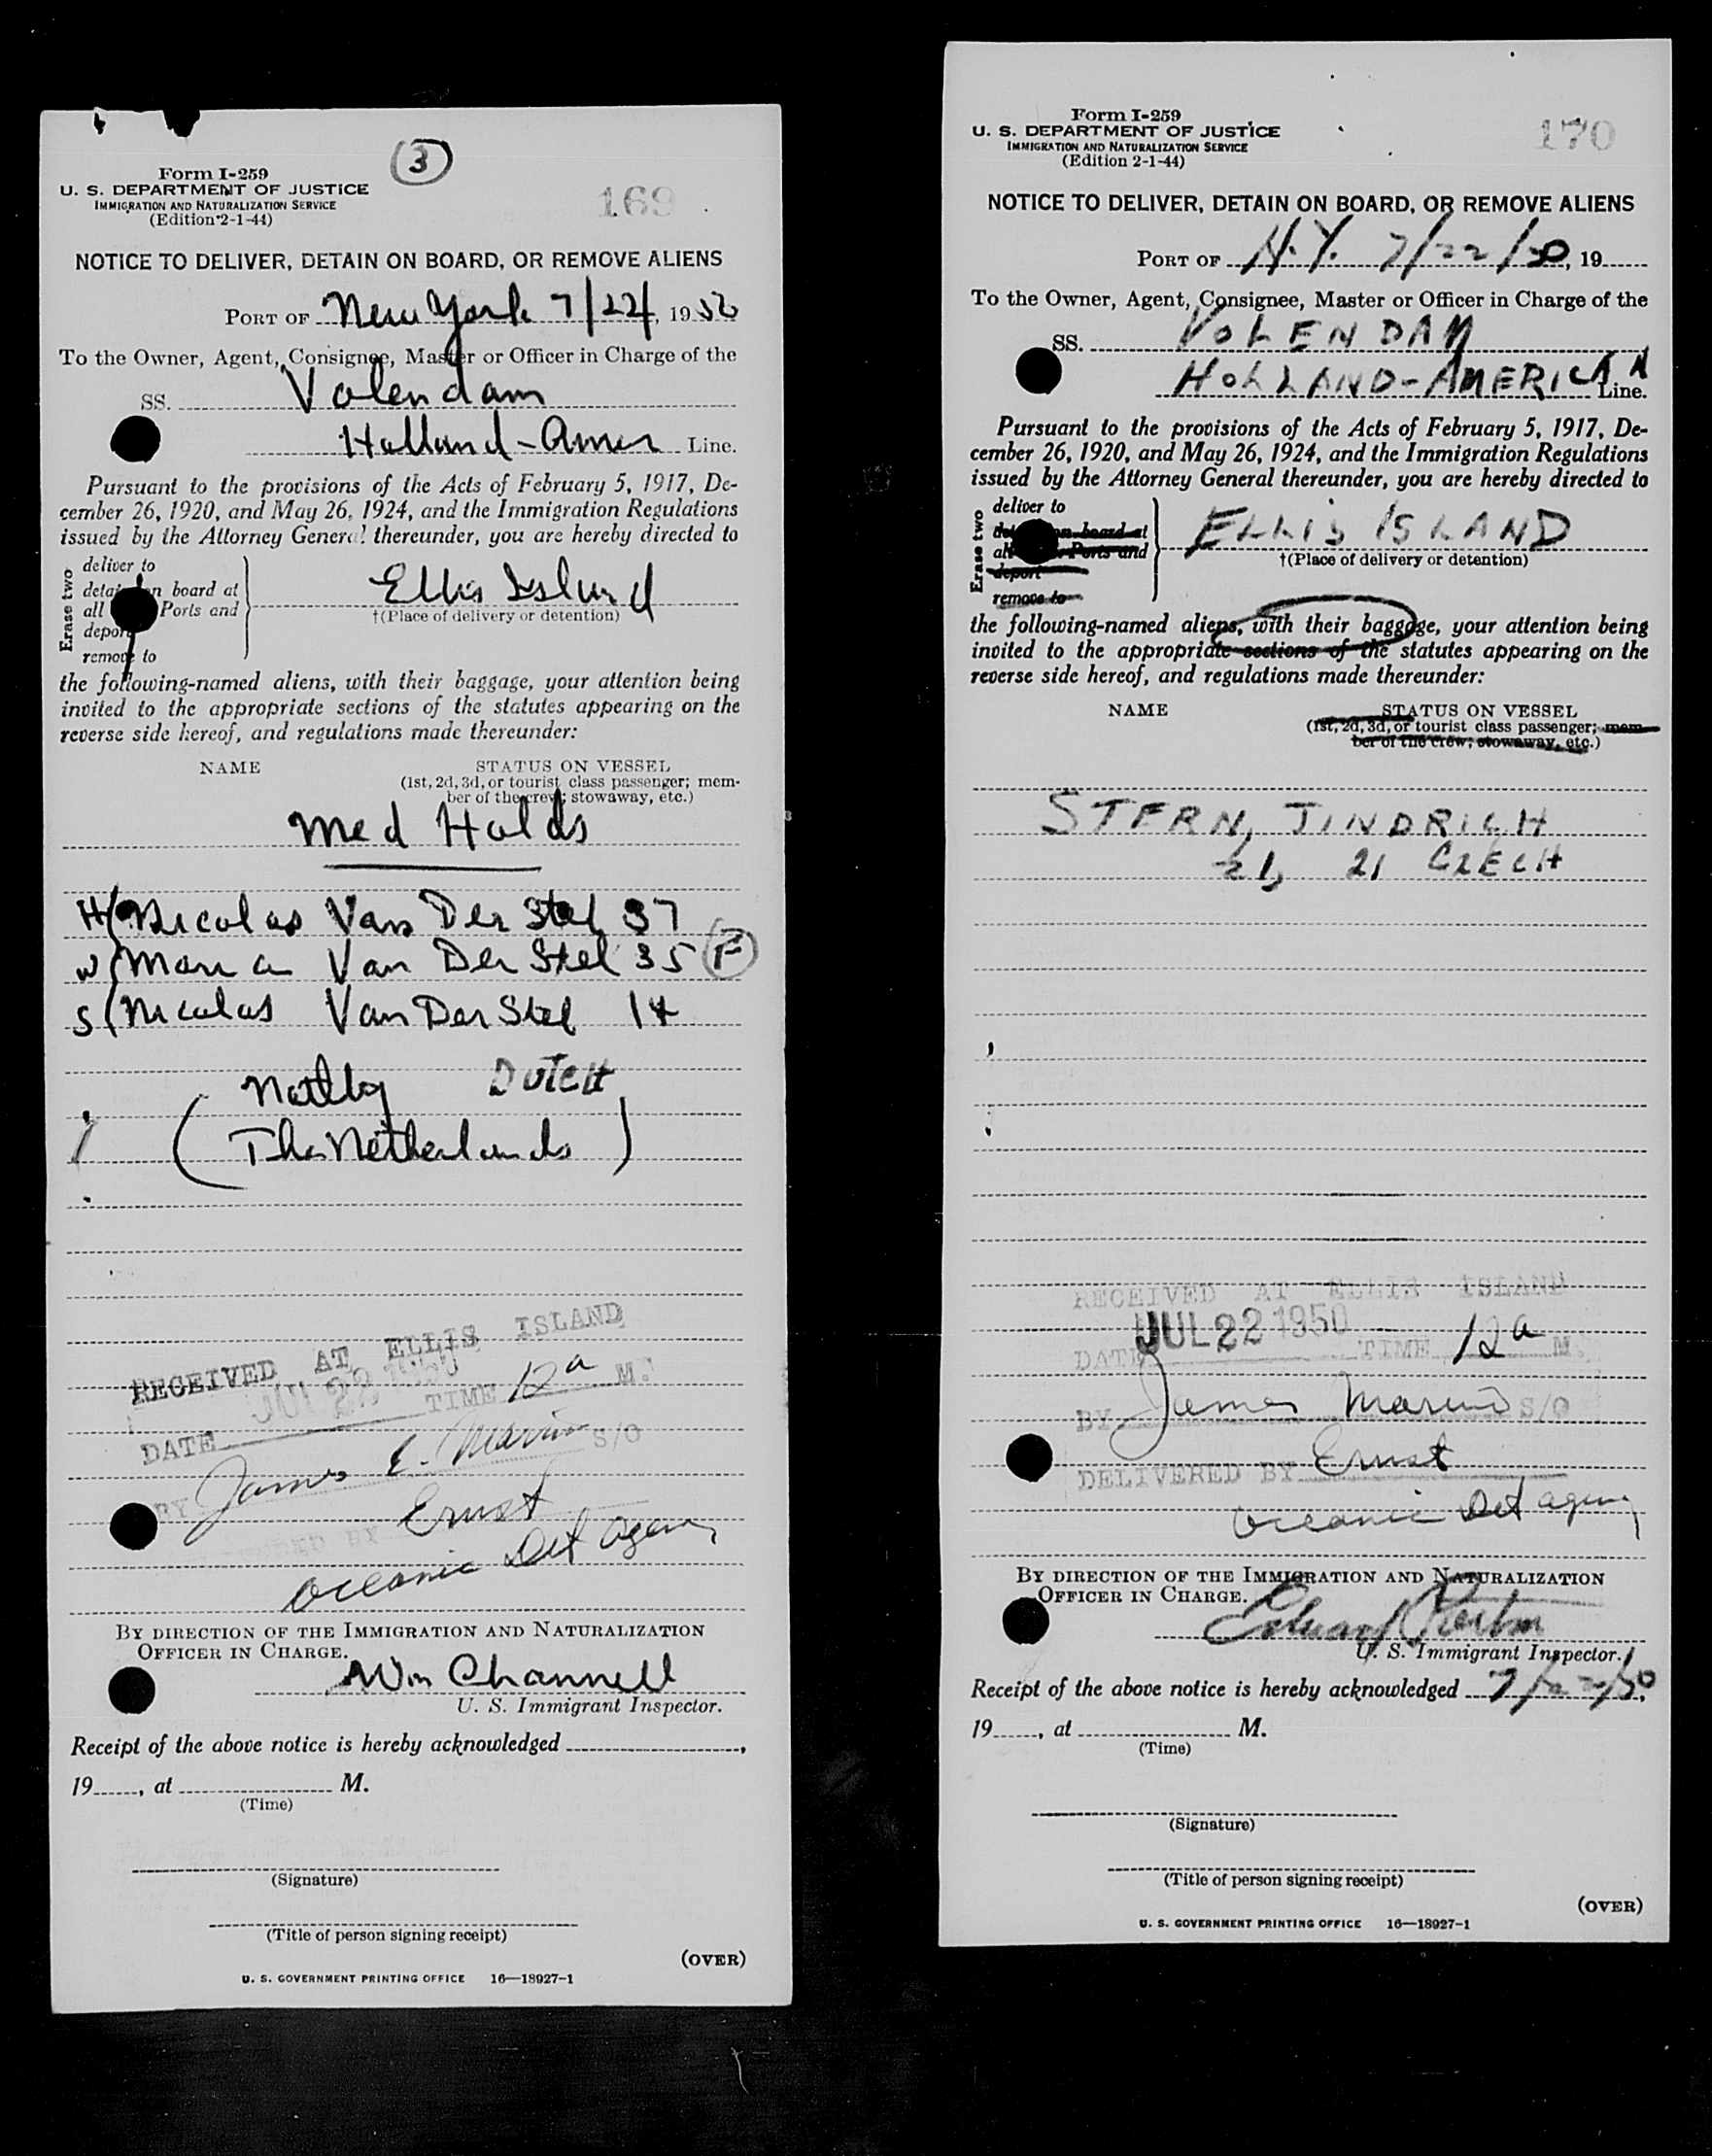 (3)
Form I-259
U. S. DEPARTMENT OF JUSTICE
IMMIGRATION AND NATURALIZATION SERVICE
(Edition 2-1-44)
169
NOTICE TO DELIVER, DETAIN ON BOARD, OR REMOVE ALIENS
PORT OF New York 7/22, 1950
To the Owner, Agent, Consignee, Master or Officer in Charge of the
SS. Volendam
Holland-Amer Line.
Pursuant to the provisions of the Acts of February 5, 1917, De-
cember 26, 1920, and May 26, 1924, and the Immigration Regulations
issued by the Attorney General thereunder, you are hereby directed to
Erase two
deliver to
detain on board at
all Ports and
deport
remove to
Ellis Island
†(Place of delivery or detention)
the following-named aliens, with their baggage, your attention being
invited to the appropriate sections of the statutes appearing on the
reverse side hereof, and regulations made thereunder:
NAME STATUS ON VESSEL
(1st, 2d, 3d, or tourist class passenger; mem-
ber of the crew; stowaway, etc.)
Med Holds
H Nicolas Van Der Stel 37
W Maria Van Der Stel 35 F
S Nicolas Van Der Stel 14
Natlty DUTCH
(The Netherlands)
RECEIVED AT ELLIS ISLAND
JUL 22 1950
DATE TIME 12 a M.
BY James E. Marvin S/O
Ernst
Oceanic Det Agency
BY DIRECTION OF THE IMMIGRATION AND NATURALIZATION
OFFICER IN CHARGE.
Wm Channell
U. S. Immigrant Inspector.
Receipt of the above notice is hereby acknowledged ,
19 , at M.
(Time)
(Signature)
(Title of person signing receipt)
(OVER)
U. S. GOVERNMENT PRINTING OFFICE 16—18927-1
Form I-259
U. S. DEPARTMENT OF JUSTICE
IMMIGRATION AND NATURALIZATION SERVICE
(Edition 2-1-44)
170
NOTICE TO DELIVER, DETAIN ON BOARD, OR REMOVE ALIENS
PORT OF N.Y. 7/22/50, 19
To the Owner, Agent, Consignee, Master or Officer in Charge of the
SS. VOLENDAM
HOLLAND-AMERICAN Line.
Pursuant to the provisions of the Acts of February 5, 1917, De-
cember 26, 1920, and May 26, 1924, and the Immigration Regulations
issued by the Attorney General thereunder, you are hereby directed to
Erase two
deliver to
on board at
all Ports and
deport
remove to
ELLIS ISLAND
†(Place of delivery or detention)
the following-named aliens, with their baggage, your attention being
invited to the appropriate sections of the statutes appearing on the
reverse side hereof, and regulations made thereunder:
NAME STATUS ON VESSEL
(1st, 2d, 3d, or tourist class passenger; mem-
ber of the crew; stowaway, etc.)
STERN, JINDRICH
21 CZECH
RECEIVED AT ELLIS ISLAND
JUL 22 1950
DATE TIME 12 a M.
BY James Marvin S/O
DELIVERED BY Ernst
Oceanic Det Agency
BY DIRECTION OF THE IMMIGRATION AND NATURALIZATION
OFFICER IN CHARGE.
U. S. Immigrant Inspector.
Receipt of the above notice is hereby acknowledged 7/22/50,
19 , at M.
(Time)
(Signature)
(Title of person signing receipt)
(OVER)
U. S. GOVERNMENT PRINTING OFFICE 16—18927-1